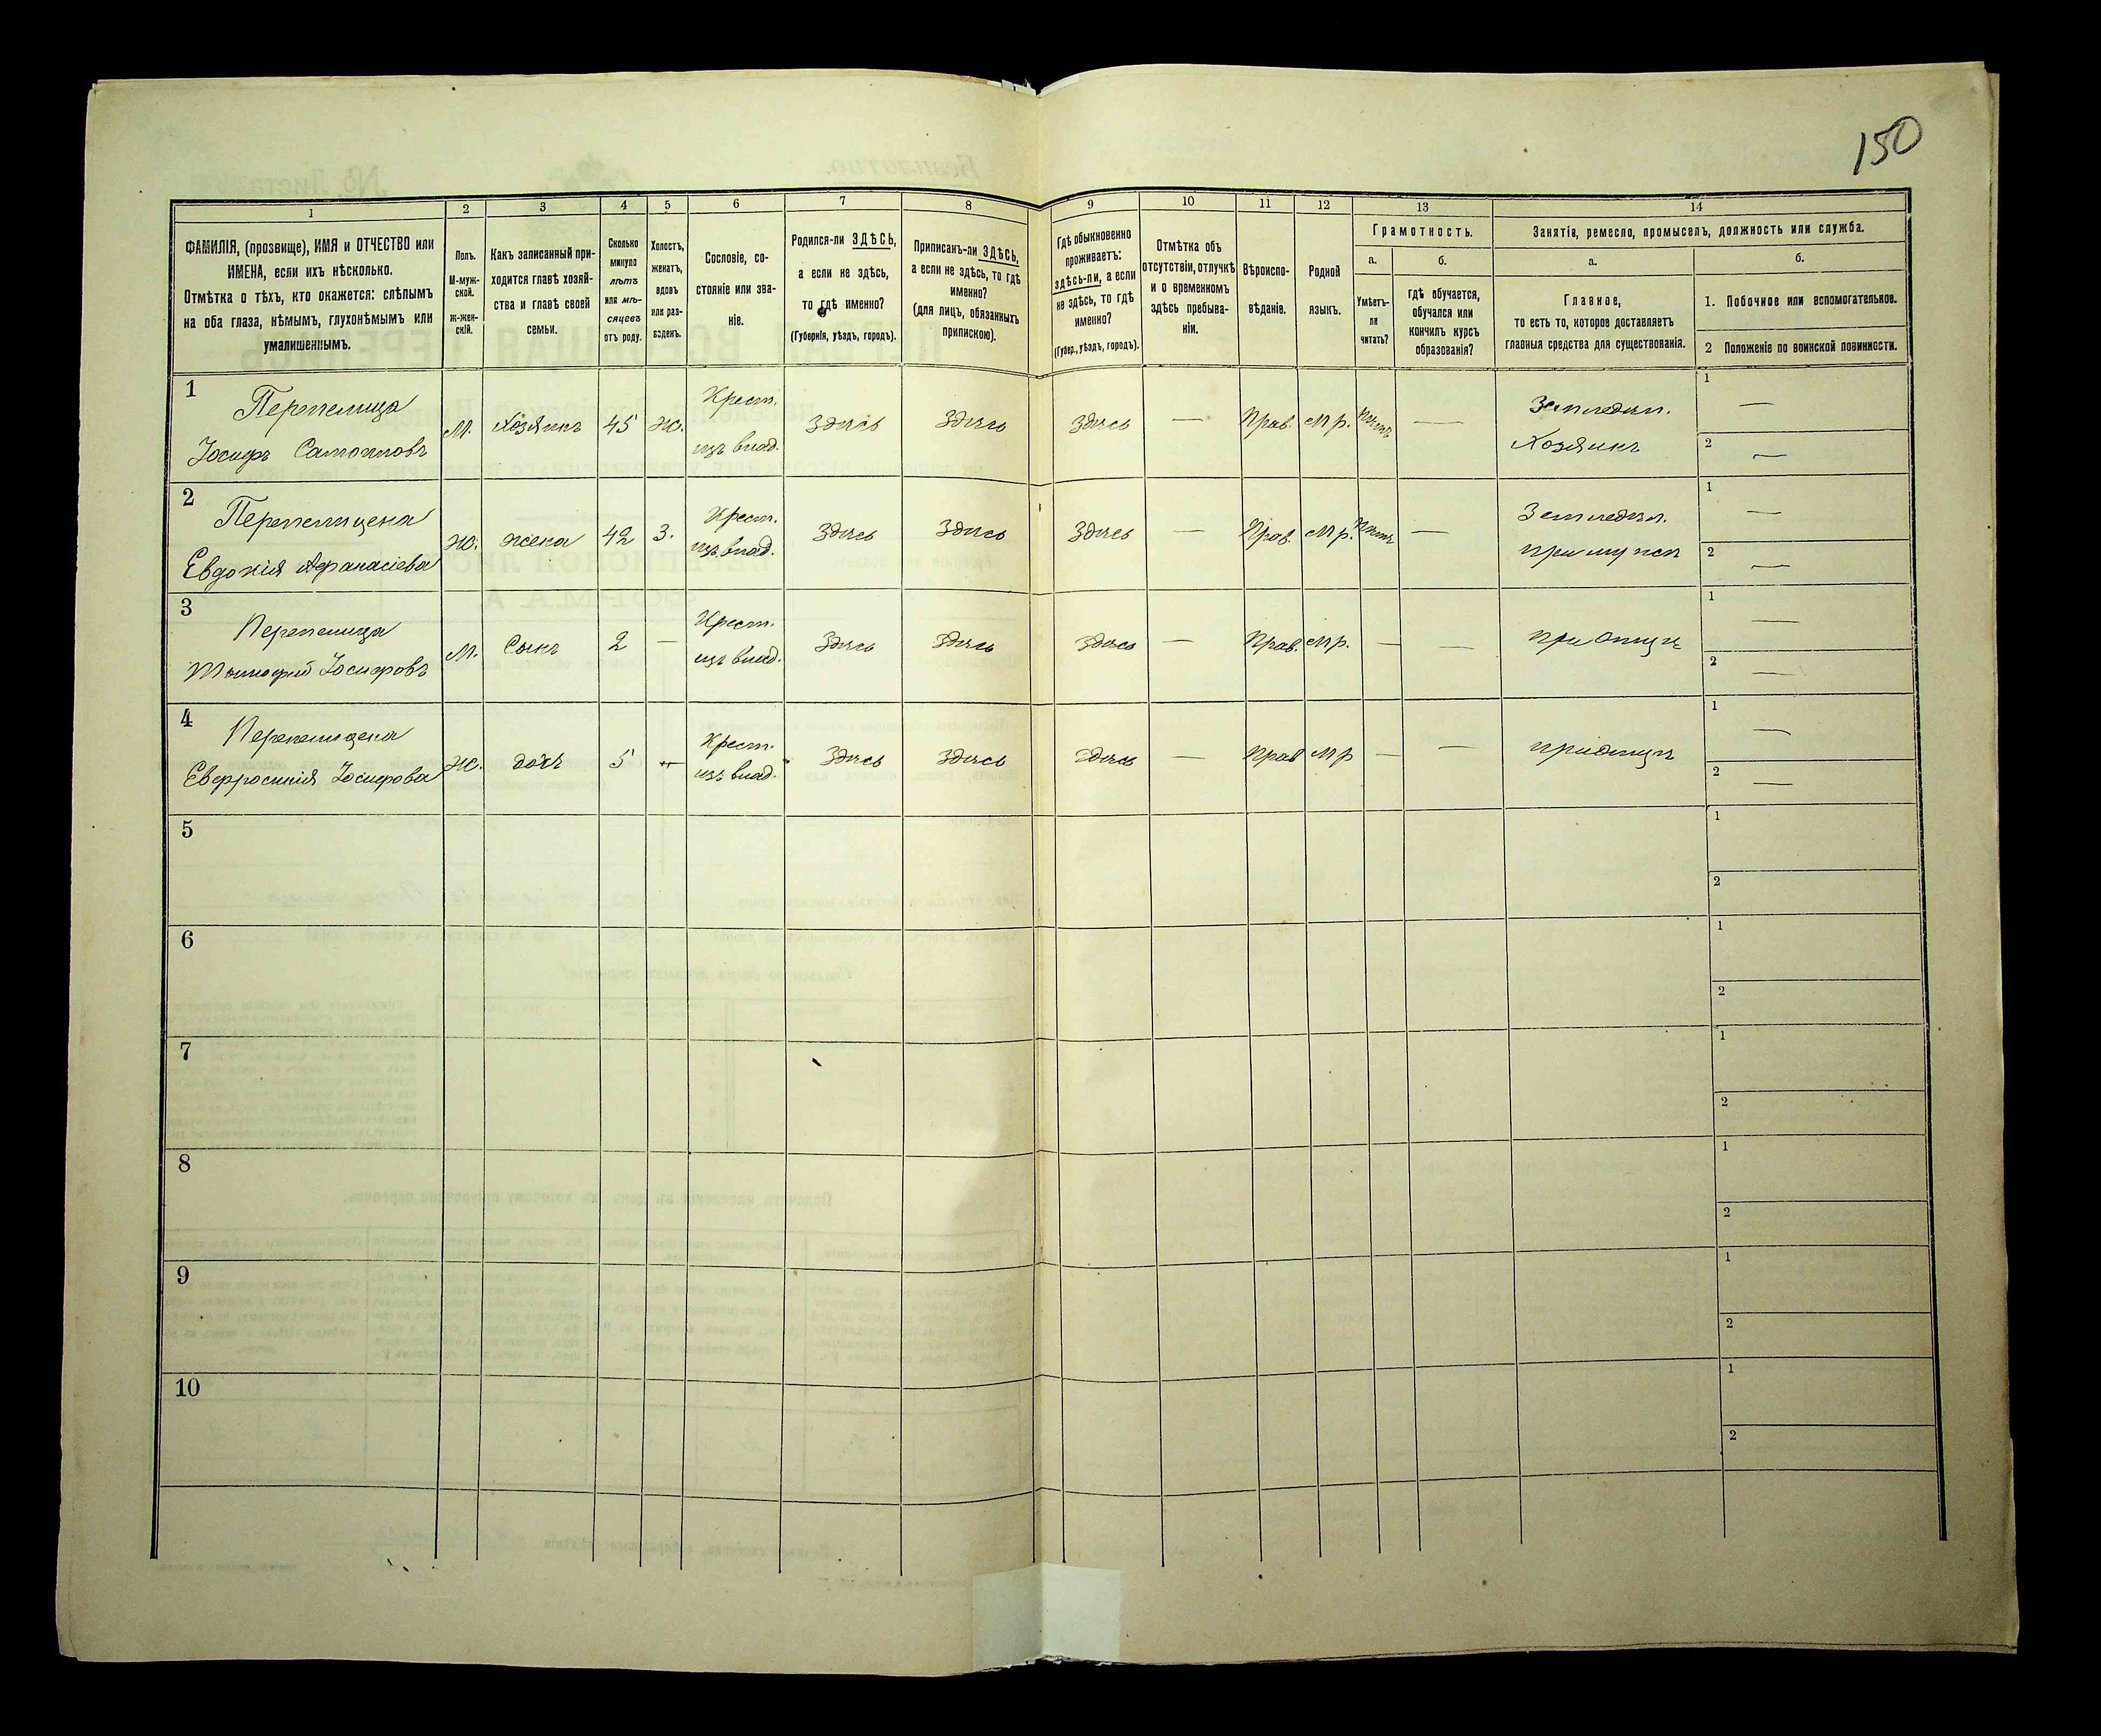 150
1 2 3 4 5 6 7 8 9 10 11 12 13 14
ФАМИЛІЯ, (прозвище), ИМЯ и ОТЧЕСТВО или
ИМЕНА, если ихъ нѣсколько.
Отмѣтка о тѣхъ, кто окажется: слѣпымъ
на оба глаза, нѣмымъ, глухонѣмымъ или
умалишеннымъ.
Полъ.
М-муж-
ской.
Ж-жен-
скій.
Какъ записанный при-
ходится главѣ хозяй-
ства и главѣ своей
семьи.
Сколько
минуло
лѣтъ
или мѣ-
сяцевъ
отъ роду.
Холостъ,
женатъ,
вдовъ
или раз-
веденъ.
Сословіе, со-
стояніе или зва-
ніе.
Родился-ли ЗДѢСЬ,
а если не здѣсь,
то гдѣ именно?
(Губернія, уѣздъ, городъ).
Приписанъ-ли ЗДѢСЬ,
а если не здѣсь, то гдѣ
именно?
(для лицъ, обязанныхъ
припискою).
Гдѣ обыкновенно
проживаетъ:
здѣсь-ли, а если
не здѣсь, то гдѣ
именно?
(Губер., уѣздъ, городъ).
Отмѣтка объ
отсутствіи, отлучкѣ
и о временномъ
здѣсь пребыва-
ніи.
Вѣроиспо-
вѣданіе.
Родной
языкъ.
Грамотность.
а.
Умѣетъ-
ли
читать?
б.
гдѣ обучается,
обучался или
кончилъ курсъ
образованія?
Занятіе, ремесло, промыселъ, должность или служба.
а.
Главное,
то есть то, которое доставляетъ
главныя средства для существованія.
б.
1. Побочное или вспомогательное.
2 Положеніе по воинской повинности.
1
Перепелица
Іосифъ Самойловъ
М. Хозяинъ 45 Ж.
Крест.
изъ влад.
Здѣсь Здѣсь Здѣсь — Прав. Мр. —
Земледѣл.
Хозяинъ
1 —
2 —
2
Перепелицена
Евдокія Афанасіева
Ж. жена 42 З.
Крест.
изъ влад.
Здѣсь Здѣсь Здѣсь — Прав. Мр. —
Земледѣл.
при мужѣ
1 —
2 —
3
Перепелица
Тимофей Іосифовъ
М. Сынъ 2 —
Крест.
изъ влад.
Здѣсь Здѣсь Здѣсь — Прав. Мр. — —
при отцѣ
1 —
2 —
4
Перепелицена
Евфросинія Іосифова
Ж. дочь 5 —
Крест.
изъ влад.
Здѣсь Здѣсь Здѣсь — Прав Мр — —
при отцѣ
1 —
2 —
5
1
2
6
1
2
7
1
2
8
1
2
9
1
2
10
1
2